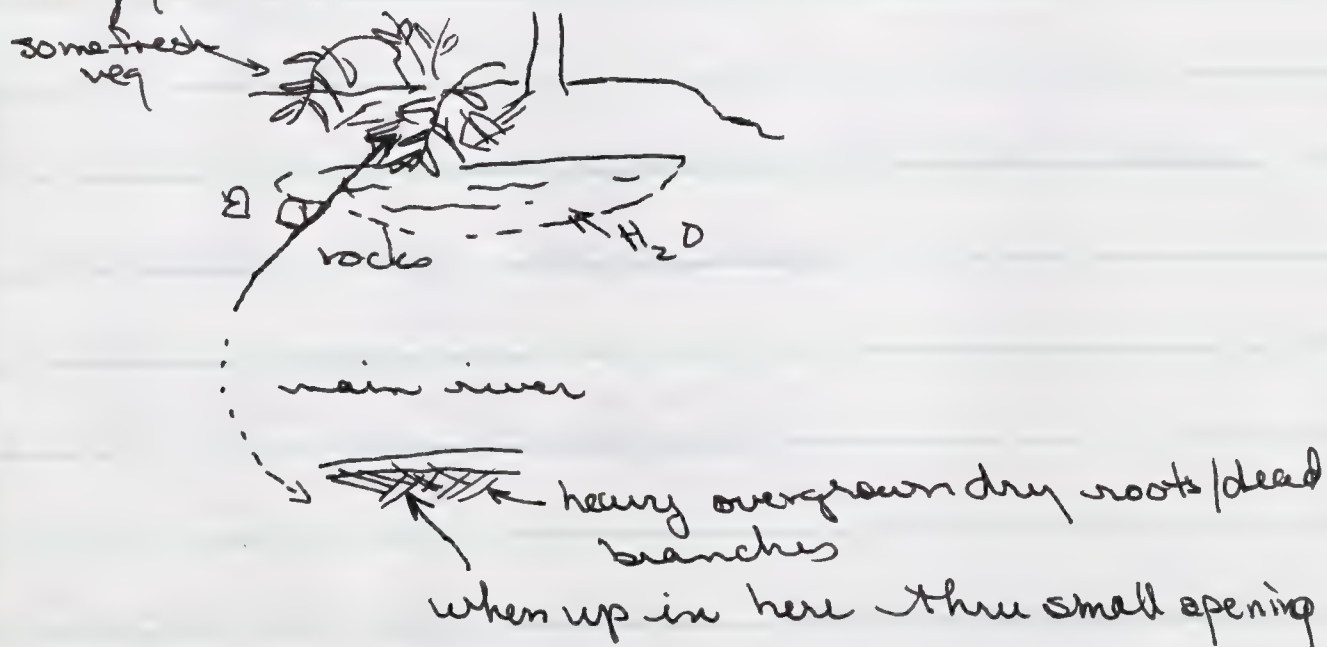 some fresh
veg
rocks
H2O
main river
heavy overgrown dry roots/dead
branches
when up in here thru small opening